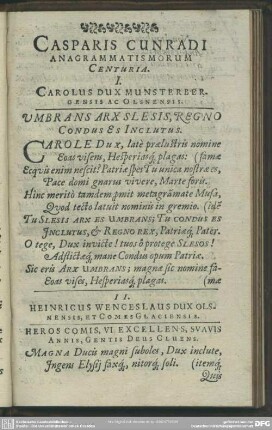 CASPARIS CUNRADI
ANAGRAMMATISMORUM
CENTURIA.
I.
CAROLUS DUX MUNSTERBER-
GENSIS AC OLSNENSIS.
UMBRANS ARX SLESIS, REGNO
CONDUS ES INCLUTUS.
CAROLE Dux, latè præluſtris nomine (famæ
Eoas viſens, Heſperiasq́; plagas:
Ecqvis enim neſcit? Patriæ ſpes Tu unica noſtræ es,
Pace domi gnarus vivere, Marte foris.
Hinc meritò tandem promit metagramate Muſa,
Qvod tecto latuit nominis in gremio. (idẽ
TU SLESIS ARX ES UMBRANS; TU CONDUS ES
INCLUTUS, & REGNO REX, Patriæq́; Pater.
O tege, Dux invicte! tuos ô protege SLESOS!
Adflictæq́; mane Condus opum Patriæ.
Sic eris ARX UMBRANS; magnæ ſic nomine fa-
Eoas viſes, Heſperiasq́; plagas. (mæ
II.
HEINRICUS WENCESLAUS DUX OLS-
NENSIS, ET COMES GLACENSIS.
HEROS COMIS, VI EXCELLENS, SVAVIS
ANNIS, GENTIS DEUS
MAGNA Ducis magni ſuboles, Dux inclute,
Ingens Elyſij ſaxq́; nitorq́; ſoli. (itemq́;
Qvis